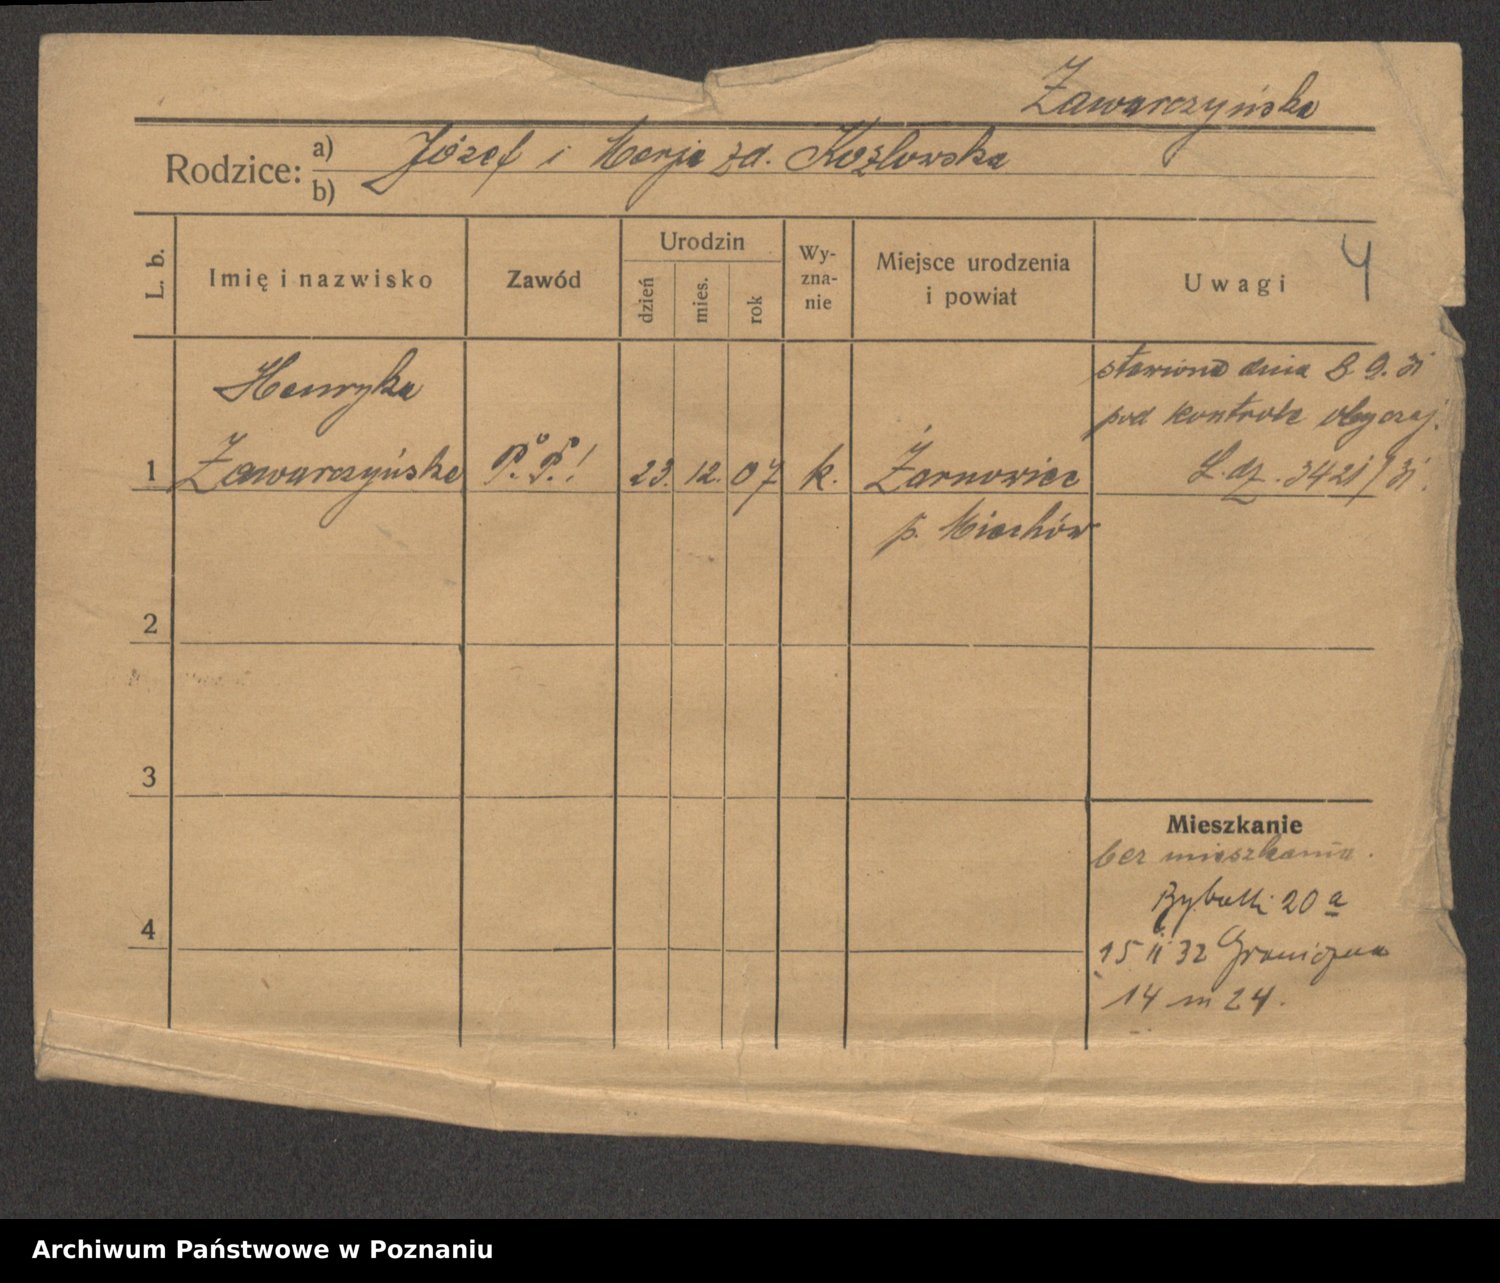 Zawarczyńska
Rodzice: a) Józef i Marja zd. Kozłowska
b)
L. b.
Imię i nazwisko
Zawód
Urodzin
dzień
mies.
rok
Wy-
zna-
nie
Miejsce urodzenia
i powiat
Uwagi
4
Henryka
1 Zawarczyńska P. P.! 23. 12. 07 k. Żarnowiec
p. Miechów
stawiona dnia 8 9. 31
pod kontrolę obyczaj.
L. dz. 3421/31.
2
3
4
Mieszkanie
bez mieszkania.
Rybaki 20 a
15 II 32 Graniczna
14 m 24.
Archiwum Państwowe w Poznaniu